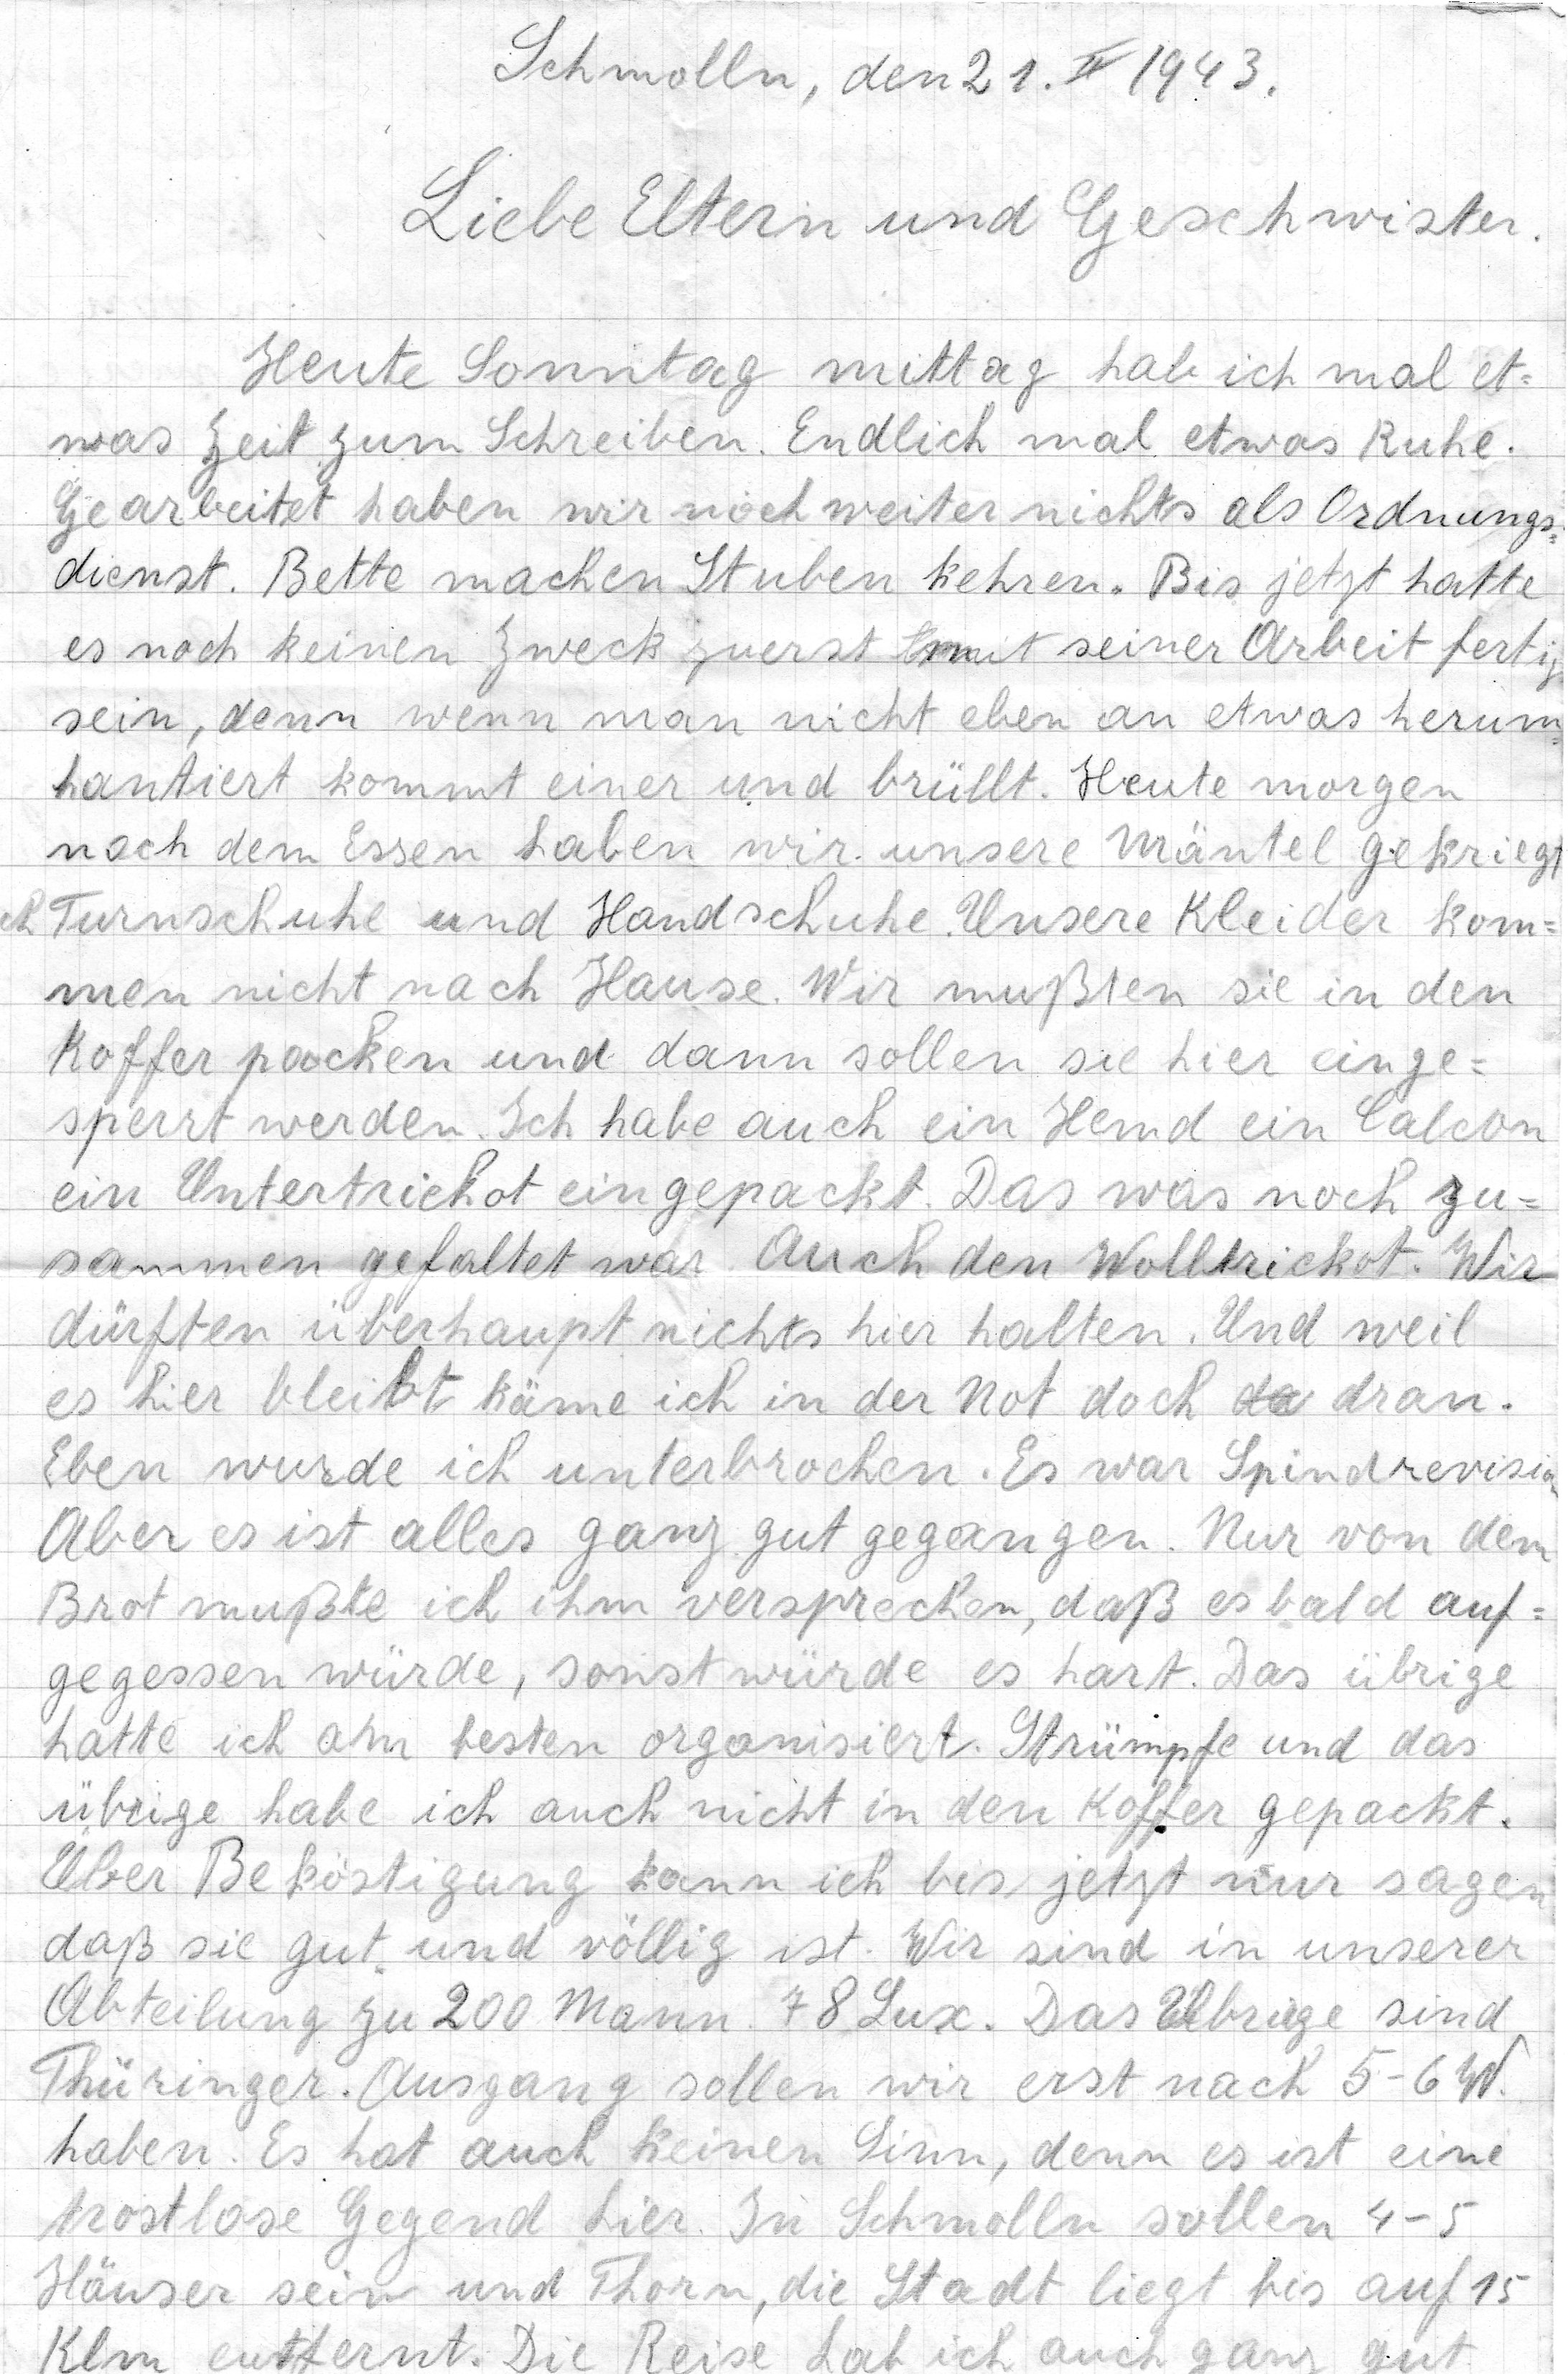 Schmolln, den 21. II 1943.
Liebe Eltern und Geschwister.
Heute Sonntag mittag hab ich mal et=
was Zeit zum Schreiben. Endlich mal etwas Ruhe.
Gearbeitet haben wir noch weiter nichts als Ordnungs=
dienst. Bette machen Stuben kehren. Bis jetzt hatte
es noch keinen Zweck zuerst mit seiner Arbeit fertig
sein, denn wenn man nicht eben an etwas herum=
hantiert kommt einer und brüllt. Heute morgen
nach dem Essen haben wir unsere Mäntel gekriegt
Turnschuhe und Handschuhe. Unsere Kleider kom=
men nicht nach Hause. Wir mußten sie in den
Koffer packen und dann sollen sie hier einge=
sperrt werden. Ich habe auch ein Hemd ein Calcon
ein Untertrichot eingepackt. Das was noch zu=
sammen gefaltet war. Auch den Wolltrickot. Wir
dürften überhaupt nichts hier halten. Und weil
es hier bleibt käme ich in der Not doch da dran.
Eben wurde ich unterbrochen. Es war Spindrevision
Aber es ist alles ganz gut gegangen. Nur von dem
Brot mußte ich ihm versprechen, daß es bald auf=
gegessen würde, sonst würde es hart. Das übrige
hatte ich am besten organisiert. Strümpfe und das
übrige habe ich auch nicht in den Koffer gepackt.
Über Beköstigung kann ich bis jetzt nur sagen
daß sie gut und völlig ist. Wir sind in unserer
Abteilung zu 200 Mann. 78 Lux. Das Übrige sind
Thüringer. Ausgang sollen wir erst nach 5-6 W.
haben. Es hat auch keinen Sinn, denn es ist eine
trostlose Gegend hier. In Schmolln sollen 4-5
Häuser sein und Thorn, die Stadt liegt bis auf 15
Klm entfernt. Die Reise hab ich auch ganz gut